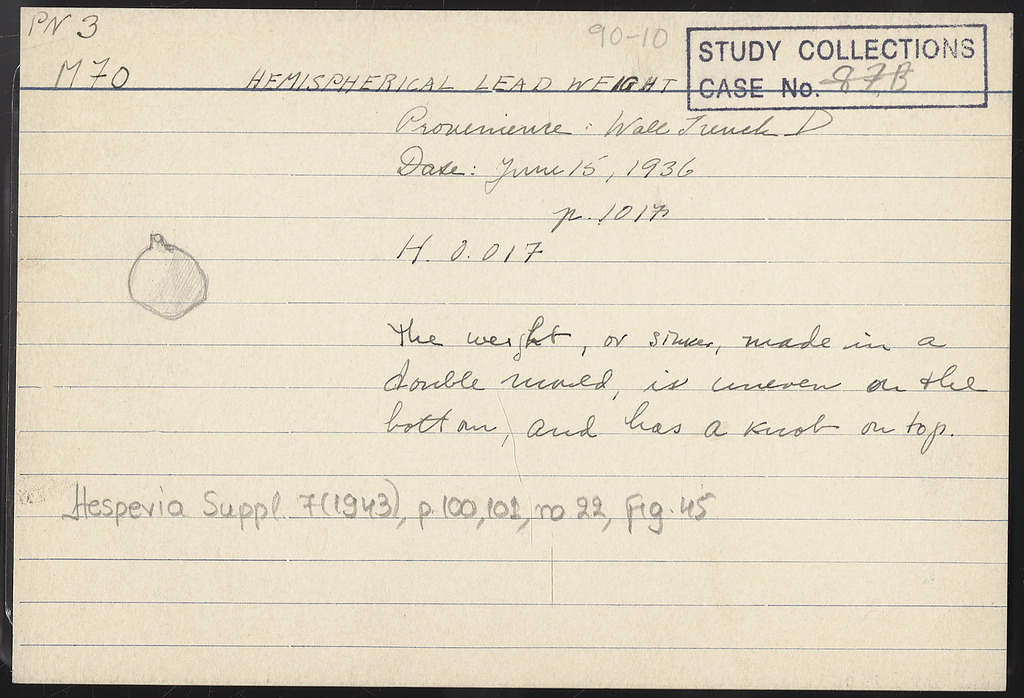 PN 3
90-10
STUDY COLLECTIONS
CASE No. 87B
M 70 HEMISPHERICAL LEAD WEIGHT
Provenience: Wall Trench D
Date: June 15, 1936
p. 101
H. 0.017
The weight, or sinker, made in a
double mould, is uneven on the
bottom, and has a knob on top.
Hesperia Suppl. 7(1943), p. 100, 102, no 22, Fig. 45